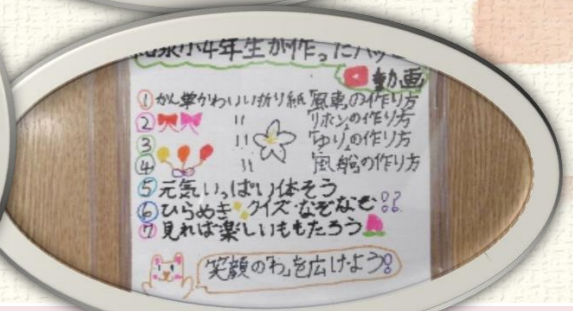 小4年生が作ったハッピー
動画
①かん単かわいい折り紙「風車」の作り方
② 〃 「リボン」の作り方
③ 〃 「ゆり」の作り方
④ 〃 「風船」の作り方
⑤元気いっぱい体そう
⑥ひらめきクイズ・なぞなぞ!?
⑦見れば楽しいももたろう
笑顔の「わ」を広げよう!